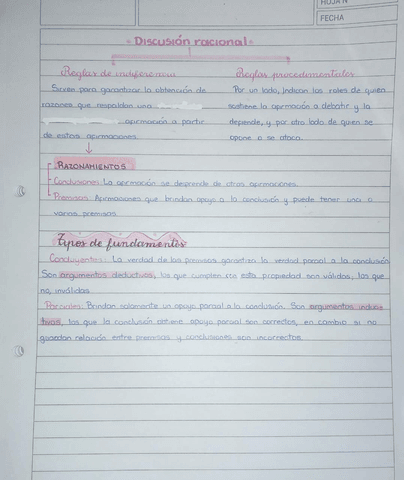 HOJA N°
FECHA
Discusión racional
Reglas de indiferencia
Reglas procedimentales
Sirven para garantizar la obtención de
razones que respaldan una
afirmación a partir
de estas afirmaciones
Por un lado, indican los roles de quien
sostiene la afirmación a debatir y la
depende, y por otro lado de quien se
opone o se ataca.
RAZONAMIENTOS
Conclusiones: La afirmación se desprende de otras afirmaciones.
Premisas: Afirmaciones que brindan apoyo a la conclusión y puede tener una o
varias premisas.
Tipos de fundamentos
Concluyentes: La verdad de las premisas garantiza la verdad parcial a la conclusión
Son argumentos deductivos, los que cumplen con esta propiedad son válidos, los que
no, inválidos
Parciales: Brindan solamente un apoyo parcial a la conclusión. Son argumentos induc
tivos, los que la conclusión obtiene apoyo parcial son correctos, en cambio si no
guardan relación entre premisas y conclusiones son incorrectos.